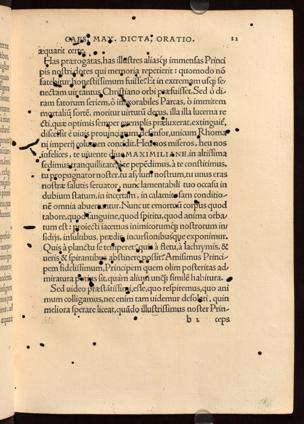 CAES. MAX. DICTA, ORATIO. 12
æquarit certe.
Has prærogatas, has illustres aliasq; immensas Princi
pis nostri dotes qui memoria repetierit: quomodo nō
fatebitur, honestissimum fuisse? Et in extremum usq; se-
nectam uit tantus, Christiano orbi præfuisset. Sed o di-
ram fatorum seriem, o inexorabiles Parcas, ó immitem
mortalium sortē. moritur uirtutū decus, illa illa lucerna re
cti, quæ optimis semper exemplis præluxerat, extinguit,
discessit è uiuis prouinciarum defensor, unicum Rhoma
ni imperij columen concidit. Heu nos miseros, heu nos
infelices, te uiuente diue MAXIMILIANE, in altissima
sedimus tranquillitate, te pepēdimus, à te constitimus,
tu propugnator noster, tu asylum nostrum, tu unus eras
nostræ salutis seruator, nunc lamentabili tuo occasu in
dubium statum, in incertam, in calamitosam conditio-
nē omnia abeunt. Nunc ut emortui corpus quod
tabore, quod sanguine, quod spiritu, quod anima orba-
tum est: proiecti iacemus inimicorumq; nostrorum in
sidijs, insultibus, prædis, incursionibusque exponimur.
Quis à planctu se temperet? quis à fletu, à lachrymis, &
ueris & spirantibus abstinere possit? Amisimus Princi-
pem fidelissimum, Principem quem olim posteritas ad-
miratura potius sit, quàm alium unq; similē habitura.
Sed uideo præstātissimi, esse, quo respiremus, quo ani
mum colligamus, nec enim tam uidemur desolati, quin
meliora sperare liceat, quādo illustrissimus noster Prin-
b 2 ceps